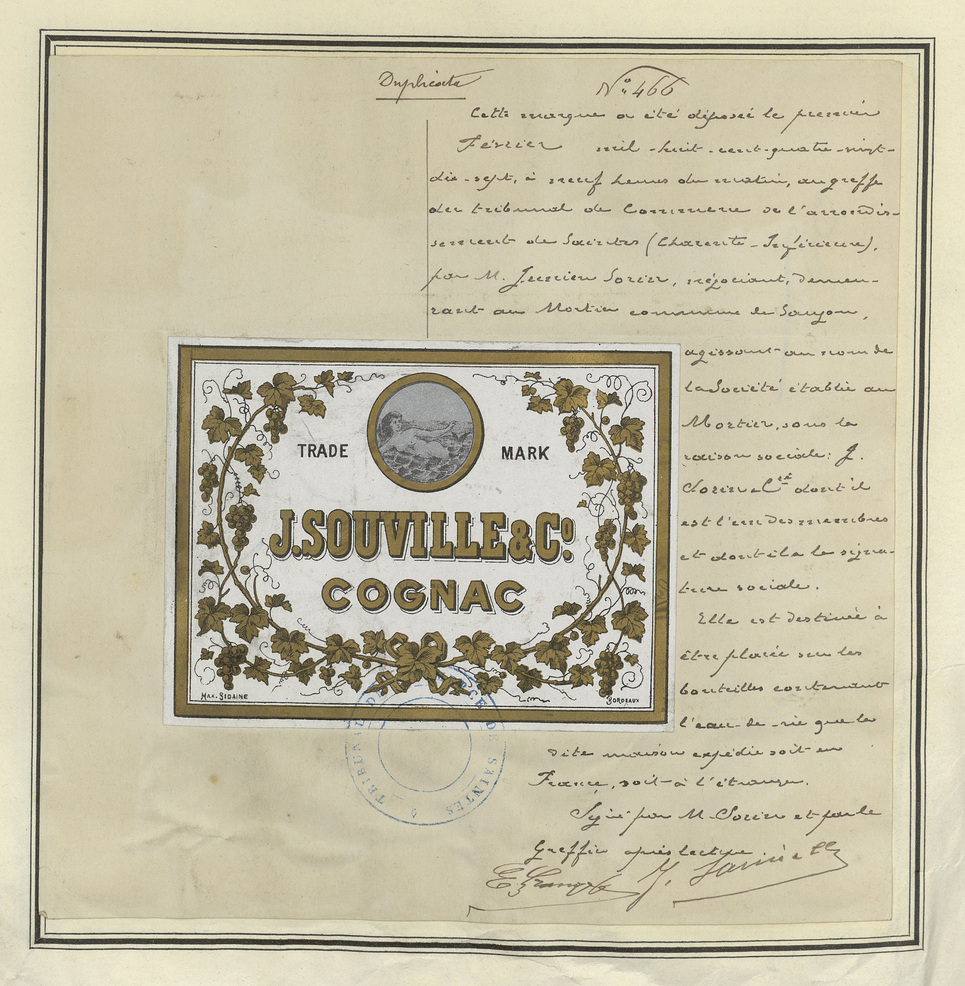 Duplicata
N° 466
Cette marque a été déposée le premier
Février mil-huit-cent-quatre-vingt-
dix-sept, à neuf heures du matin, au greffe
du tribunal de Commerce de l'arrondis-
sement de Saintes (Charente-Inférieure),
par M. Sorin, négociant, demeu-
rant au Mortier commune de Saujon,
agissant au nom de
la Société établie au
Mortier, sous la
raison sociale: J.
Sorin & Cie dont il
est l'un des membres
et dont il a la signa-
ture sociale.
Elle est destinée à
être placée sur les
bouteilles contenant
l'eau-de-vie que la
dite maison expédie soit en
France, soit à l'étranger.
Signé par M. Sorin et par le
Greffier après lecture.
TRADE MARK
J. SOUVILLE & Co.
COGNAC
MAX. SIDAINE
BORDEAUX
TRIBUNAL DE SAINTES